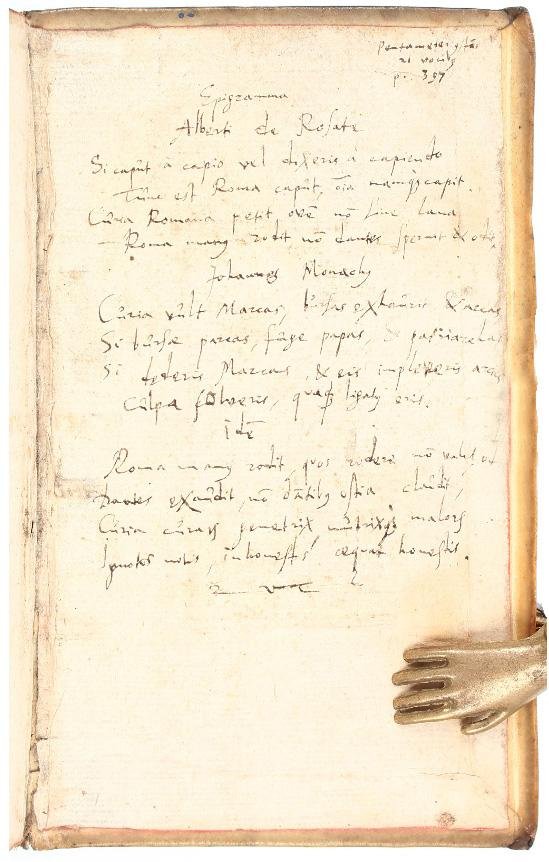 Pentameter
21 vocib
p. 397
Epigramma
Alberti de Rosate
Si caput à capio vel dixeris à capiendo
Tunc est Roma caput, oīa namq; capit.
Curia Romana petit, ovē nō sine lana
Roma manꝰ rodit nō dantes spernit & odit.
Johannes Monachꝰ
Curia vult Marcas, bursas exhaurit & arcas
Si bursæ parcas, fuge papas, & patriarchas
Si dederis Marcas, & eis impleveris arcas
Culpa solveris, quaq; ligatꝰ eris.
idē
Roma manꝰ rodit, quos rodere nō valet, odit
Dantes exaudit, nō dātibꝰ ostia claudit,
Curia curarꝫ genetrix, nutrixq; malorꝫ
Ignotos notis, inhonestis æquat honestis.